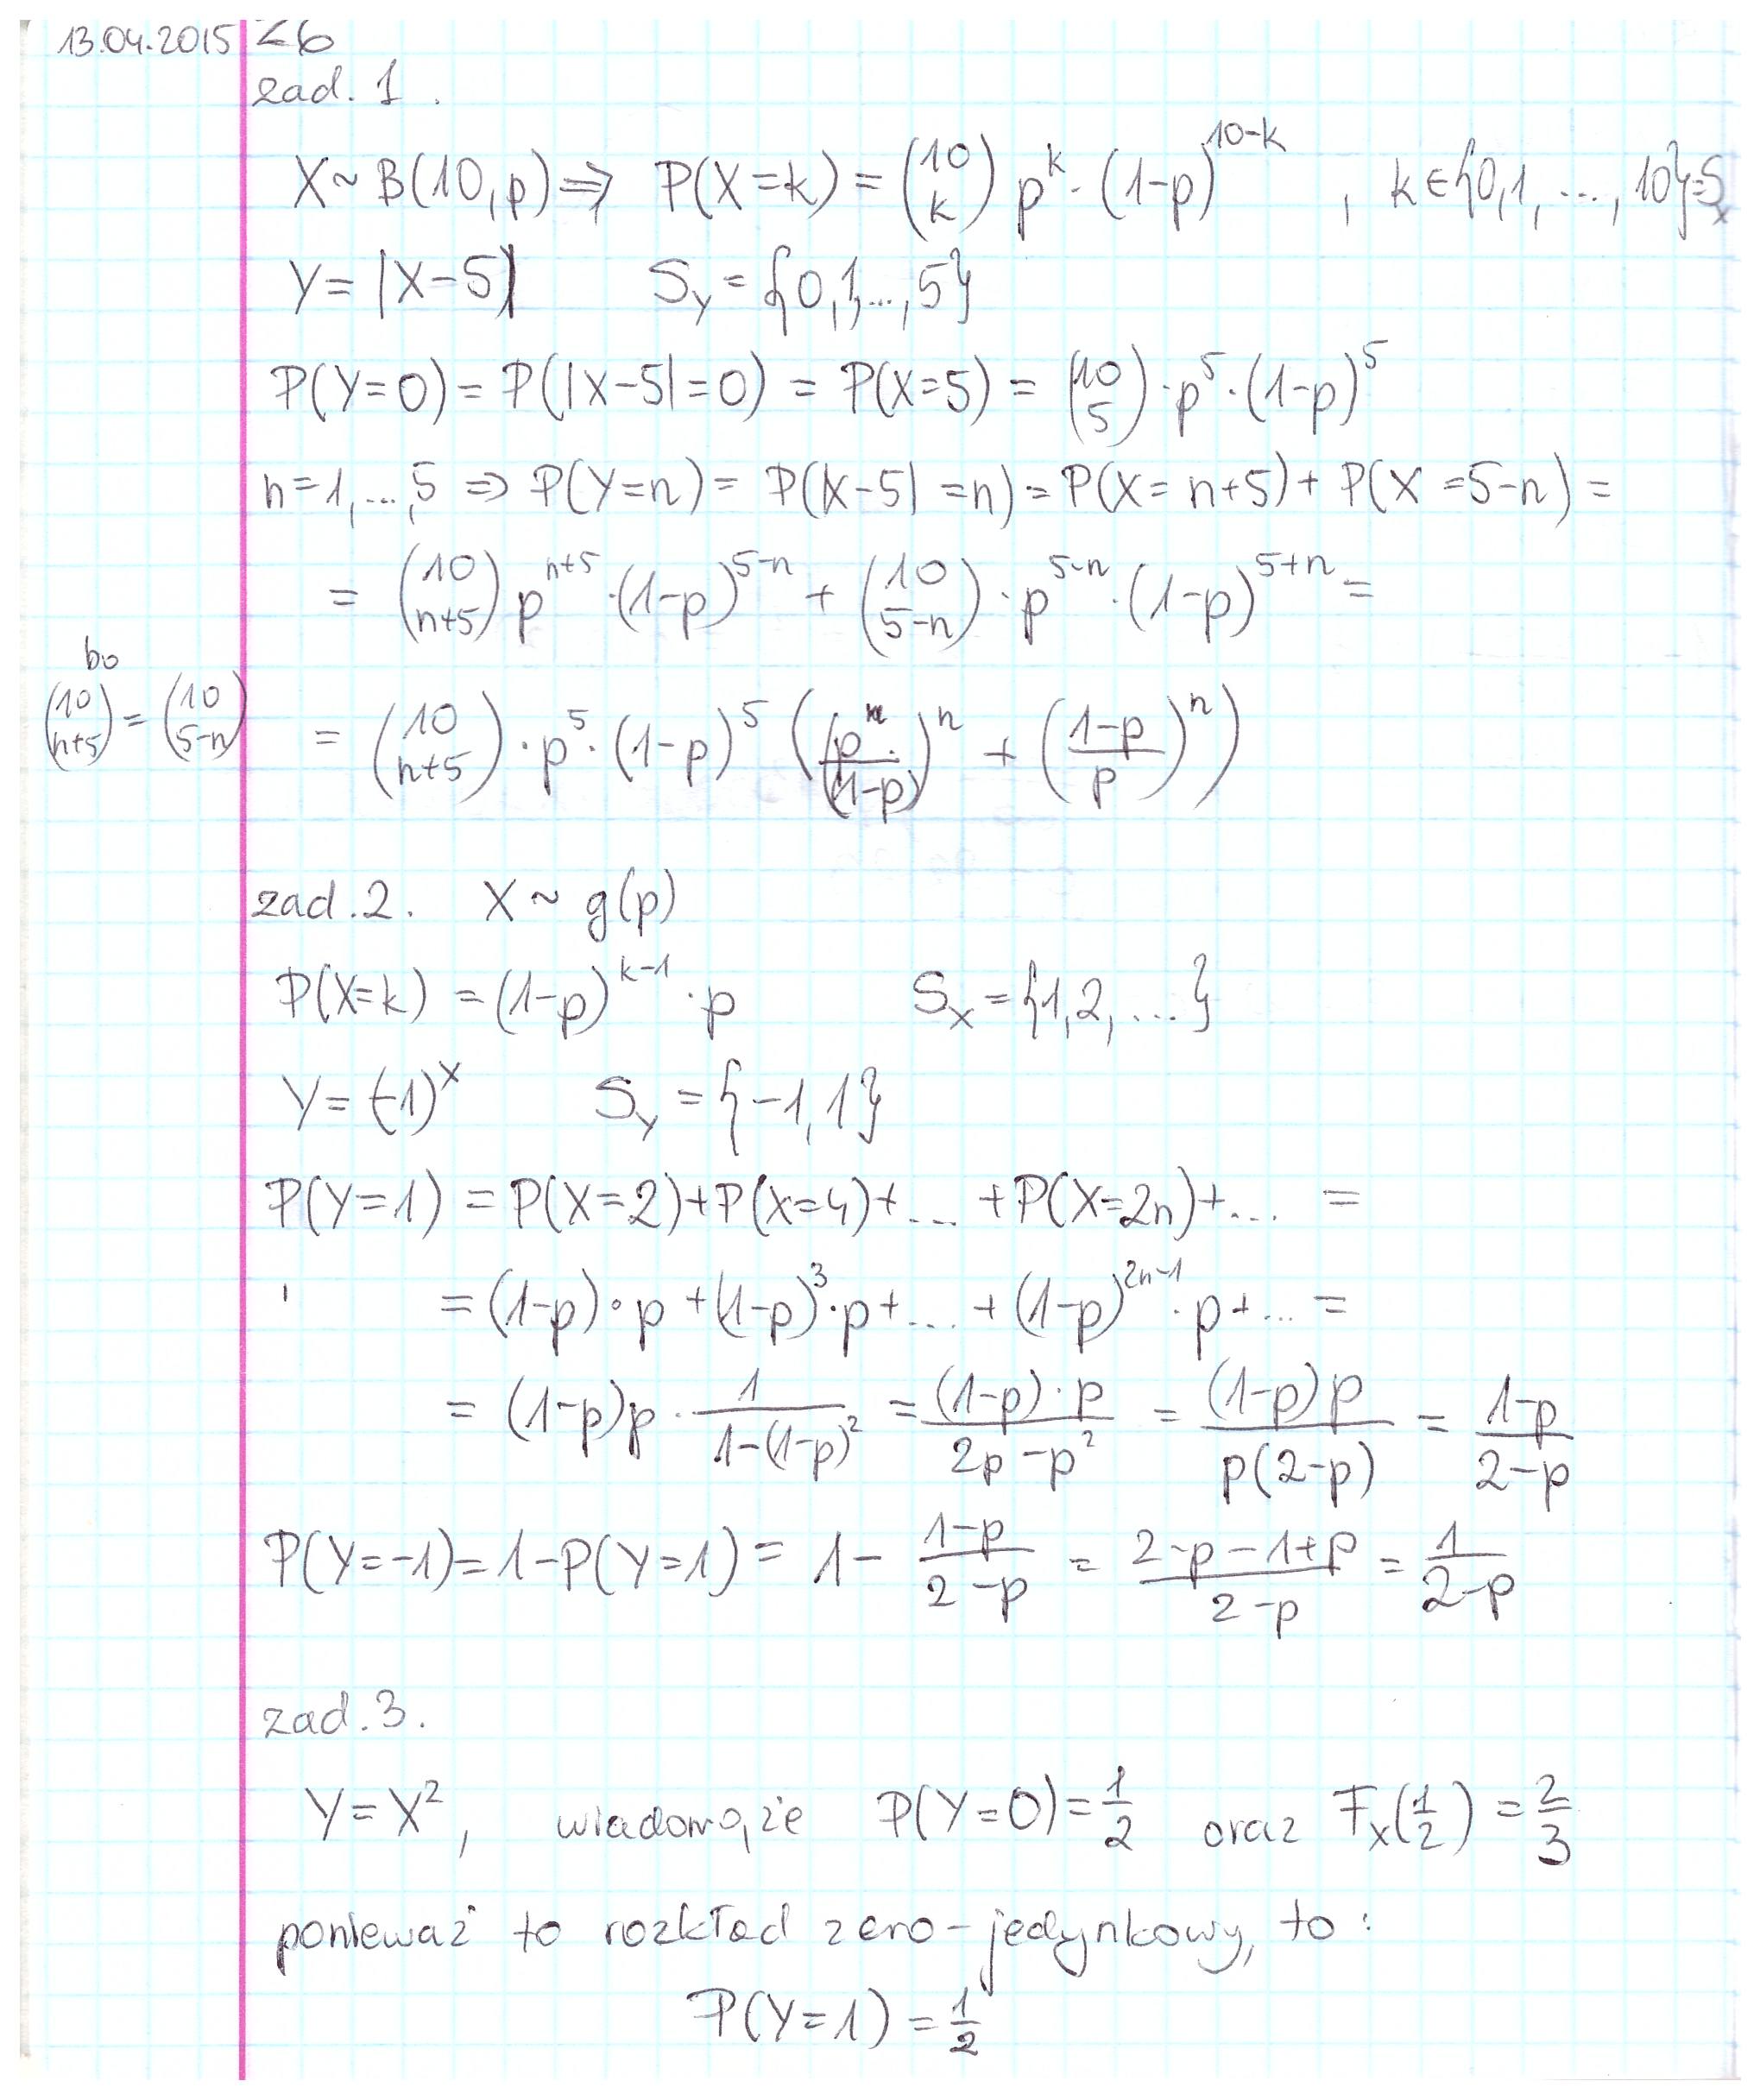 13.04.2015 Z6
zad. 1.
X ~ B(10, p) ⇒ P(X=k) = (10 k) p^k · (1-p)^{10-k} , k ∈ {0,1, ..., 10} = S_x
Y = |X-5| S_Y = {0,1,...,5}
P(Y=0) = P(|X-5|=0) = P(X=5) = (10 5) · p^5 · (1-p)^5
n=1,...,5 ⇒ P(Y=n) = P(|X-5| = n) = P(X = n+5) + P(X = 5-n) =
= (10 n+5) p^{n+5} · (1-p)^{5-n} + (10 5-n) · p^{5-n} · (1-p)^{5+n} =
bo
(10 n+5) = (10 5-n)
= (10 n+5) · p^5 · (1-p)^5 ((p/(1-p))^n + ((1-p)/p)^n)
zad. 2. X ~ g(p)
P(X=k) = (1-p)^{k-1} · p S_X = {1,2, ...}
Y = (-1)^X S_Y = {-1, 1}
P(Y=1) = P(X=2) + P(X=4) + ... + P(X=2n) + ... =
= (1-p) · p + (1-p)^3 · p + ... + (1-p)^{2n-1} · p + ... =
= (1-p)p · 1/(1-(1-p)^2) = (1-p)·p/(2p-p^2) = (1-p)p/(p(2-p)) = (1-p)/(2-p)
P(Y=-1) = 1-P(Y=1) = 1 - (1-p)/(2-p) = (2-p-1+p)/(2-p) = 1/(2-p)
zad. 3.
Y = X^2, wiadomo, że P(Y=0) = 1/2 oraz F_X(1/2) = 2/3
ponieważ to rozkład zero-jedynkowy, to:
P(Y=1) = 1/2